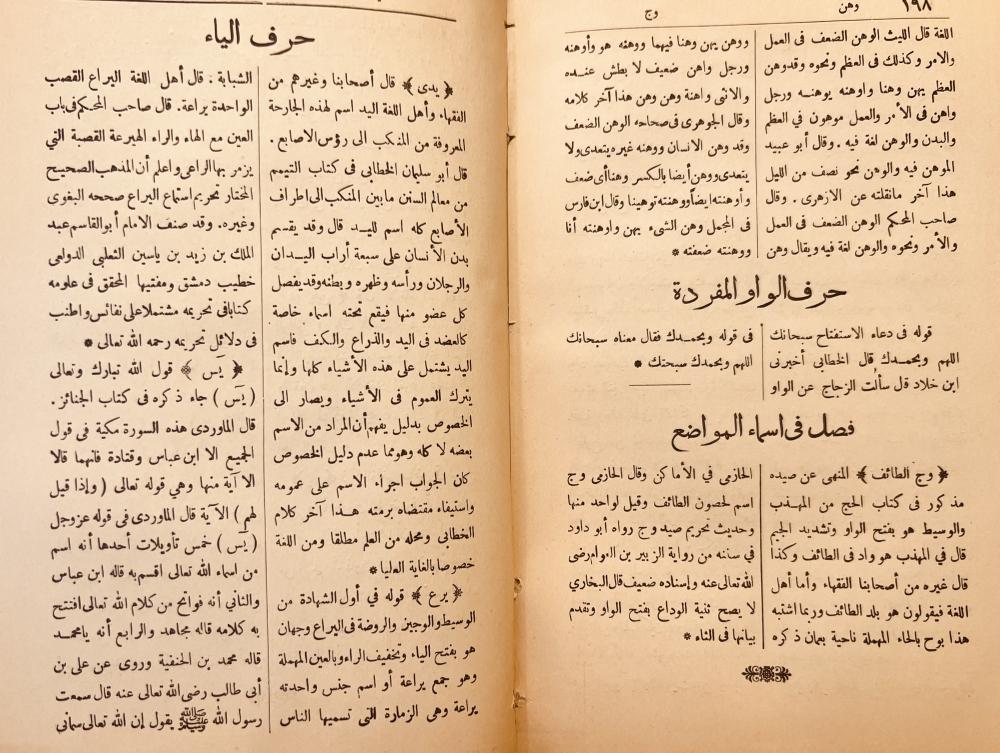 ١٩٨
وهن
وج
اللغة قال الليث الوهن الضعف فى العمل
والامر وكذلك فى العظم ونحوه وقدوهن
العظم يهن وهنا واوهنه يوهنـه ورجل
واهن فى الأمر والعمل موهون في العظم
والبدن والوهن لغة فيه . وقال أبو عبيد
الموهن فيه والوهن نحو نصف من الليل
هذا آخر مانقلته عن الازهرى . وقال
صاحب المحكم الوهن الضعف فى العمل
والأمر ونحوه والوهن لغة فيه ويقال وهن
ووهن يهن وهنا فيهما ووهنه هو وأوهنه
ورجل واهن ضعيف لا بطش عنـده
والانثى واهنة وهن وهن هذا آخر كلامه
وقال الجوهرى فى صحاحه الوهن الضعف
وقد وهن الانسان ووهنه غيره يتعدى ولا
يتعدى ووهن أيضا بالكسر وهنا أى ضعف
وأوهنته ايضاً ووهنته توهينا وقال ابن فارس
فى المجمل وهن الشىء يهن واوهنته أنا
ووهنته ضعفته *
حرف الواو المفردة
قوله فى دعاء الاستفتاح سبحانك
اللهم وبحمـدك قال الخطابى أخبرنى
ابن خلاد قل سألت الزجاج عن الواو
فى قوله وبحمـدك فقال معناه سبحانك
اللهم وبحمدك سبحتك *
فصل فى اسماء المواضع
﴿ وج الطائف ﴾ المنهى عن صيده
مذكور فى كتاب الحج من المهـذب
والوسيط هو بفتح الواو وتشديد الجيم
قال في المهذب هو واد فى الطائف وكذا
قال غيره من أصحابنا الفقهاء وأما أهل
اللغة فيقولون هو بلد الطائف وربما اشتبه
هذا بوح بالحاء المهملة ناحية بعمان ذكره
الحازمى في الأماكن وقال الحازمى وج
اسم لحصون الطائف وقيل لواحد منها
وحديث تحريم صيد وج رواه أبو داود
في سننه من رواية الزبير بن العوام رضى
الله تعالى عنه وإسناده ضعيف قال البخاري
لا يصح ثنية الوداع بفتح الواو وتقدم
بيانها فى الثاء *
حرف الياء
﴿ يدى ﴾ قال أصحابنا وغيرهم من
الفقهاء وأهل اللغة اليد اسم لهذه الجارحة
المعروفة من المنكب الى رؤس الاصابع .
قال أبو سليمان الخطابى في كتاب التيمم
من معالم السنن مابين المنكب الى اطراف
الأصابع كله اسم لليـد قال وقد يقسم
بدن الأنسان على سبعة أراب اليـدان
والرجلان ورأسه وظهره وبطنه وقد يفصل
كل عضو منها فيقع تحته اسماء خاصة
كالعضد فى اليد والذراع والكف فاسم
اليد يشتمل على هذه الأشياء كلها وإنما
يترك العموم فى الأشياء ويصار الى
الخصوص بدليل يفهم أن المراد من الاسم
بعضه لا كله وهومما عدم دليل الخصوص
كان الجواب اجراء الاسم على عمومه
واستيفاء مقتضاه برمته هـذا آخر كلام
الخطابى ومحله من العلم مطلقا ومن اللغة
خصوصا بالغاية العليا *
﴿ يرع ﴾ قوله في أول الشهادة من
الوسيط والوجيز والروضة فى اليراع وجهان
هو بفتح الياء وتخفيف الراء وبالعين المهملة
وهو جمع يراعة أو اسم جنس واحدته
يراعة وهى الزمارة التى تسميها الناس
الشبابة . قال أهل اللغة اليراع القصب
الواحدة يراعة. قال صاحب المحكم فى باب
العين مع الهاء والراء الهيرعة القصبة التي
يزمر بها الراعى واعلم أن المذهب الصحيح
المختار تحريم استماع اليراع صححه البغوى
وغيره. وقد صنف الامام أبو القاسم عبد
الملك بن زيد بن ياسين الثعلبى الدولعى
خطيب دمشق ومفتيها المحقق فى علومه
كتابا فى تحريمه مشتملا على نفائس واطنب
فى دلائل تحريمه رحمه الله تعالى *
﴿ يَس ﴾ قول الله تبارك وتعالى
( يَس ) جاء ذكره فى كتاب الجنائز .
قال الماوردى هذه السورة مكية فى قول
الجميع الا ابن عباس وقتادة فانهما قالا
الا آية منها وهي قوله تعالى ( وإذا قيل
لهم ) الآية قال الماوردى فى قوله عز وجل
( يَس ) خمس تأويلات أحدها أنه اسم
من اسماء الله تعالى اقسم به قاله ابن عباس
والثاني أنه فواتح من كلام الله تعالى افتتح
به كلامه قاله مجاهد والرابع أنه يامحمـد
قاله محمد بن الحنفية وروى عن على بن
أبى طالب رضى الله تعالى عنه قال سمعت
رسول الله ﷺ يقول إن الله تعالى سمانى